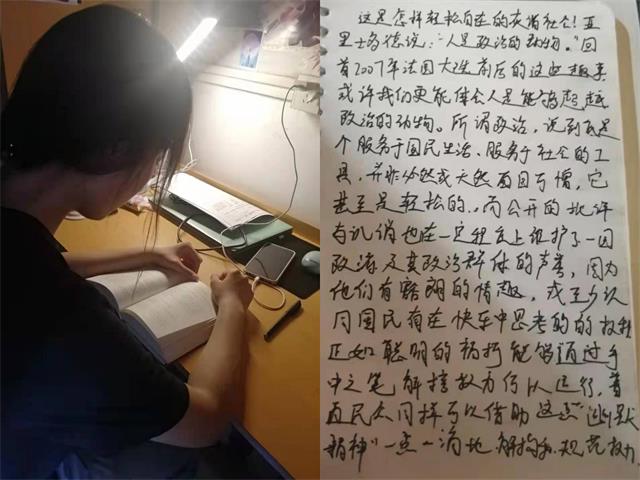 这是怎样轻松自在的表演社会！亚
里士多德说："人是政治的动物。"回
首2007年法国大选前后的这些趣事
或许我们更能体会人是能够超越
政治的动物。所谓政治，说到底是
个服务于国民生活、服务于社会的工
具，并非必然或天然面目可憎，它
甚至是轻松的，而公开的批评
与讥俏也在一定程度上维护了一国
政治及其政治群体的声誉，因为
他们有豁朗的情趣，或至少认
同国民有在快乐中思考的的权利
正如聪明的 能够通过手
中之笔解权力何以运行，
民众同样可以借助这点"幽默
精神"一点一滴地解构和规范权力